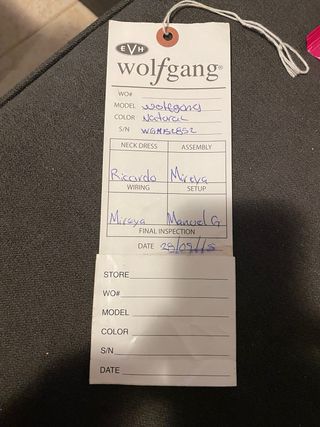 EVH
wolfgang®
WO#
MODEL wolfgang
COLOR Natural
S/N WGM152852
NECK DRESS ASSEMBLY
Ricardo Mireya
WIRING SETUP
Mireya Manuel G
FINAL INSPECTION
DATE 29/09/15
STORE
WO#
MODEL
COLOR
S/N
DATE